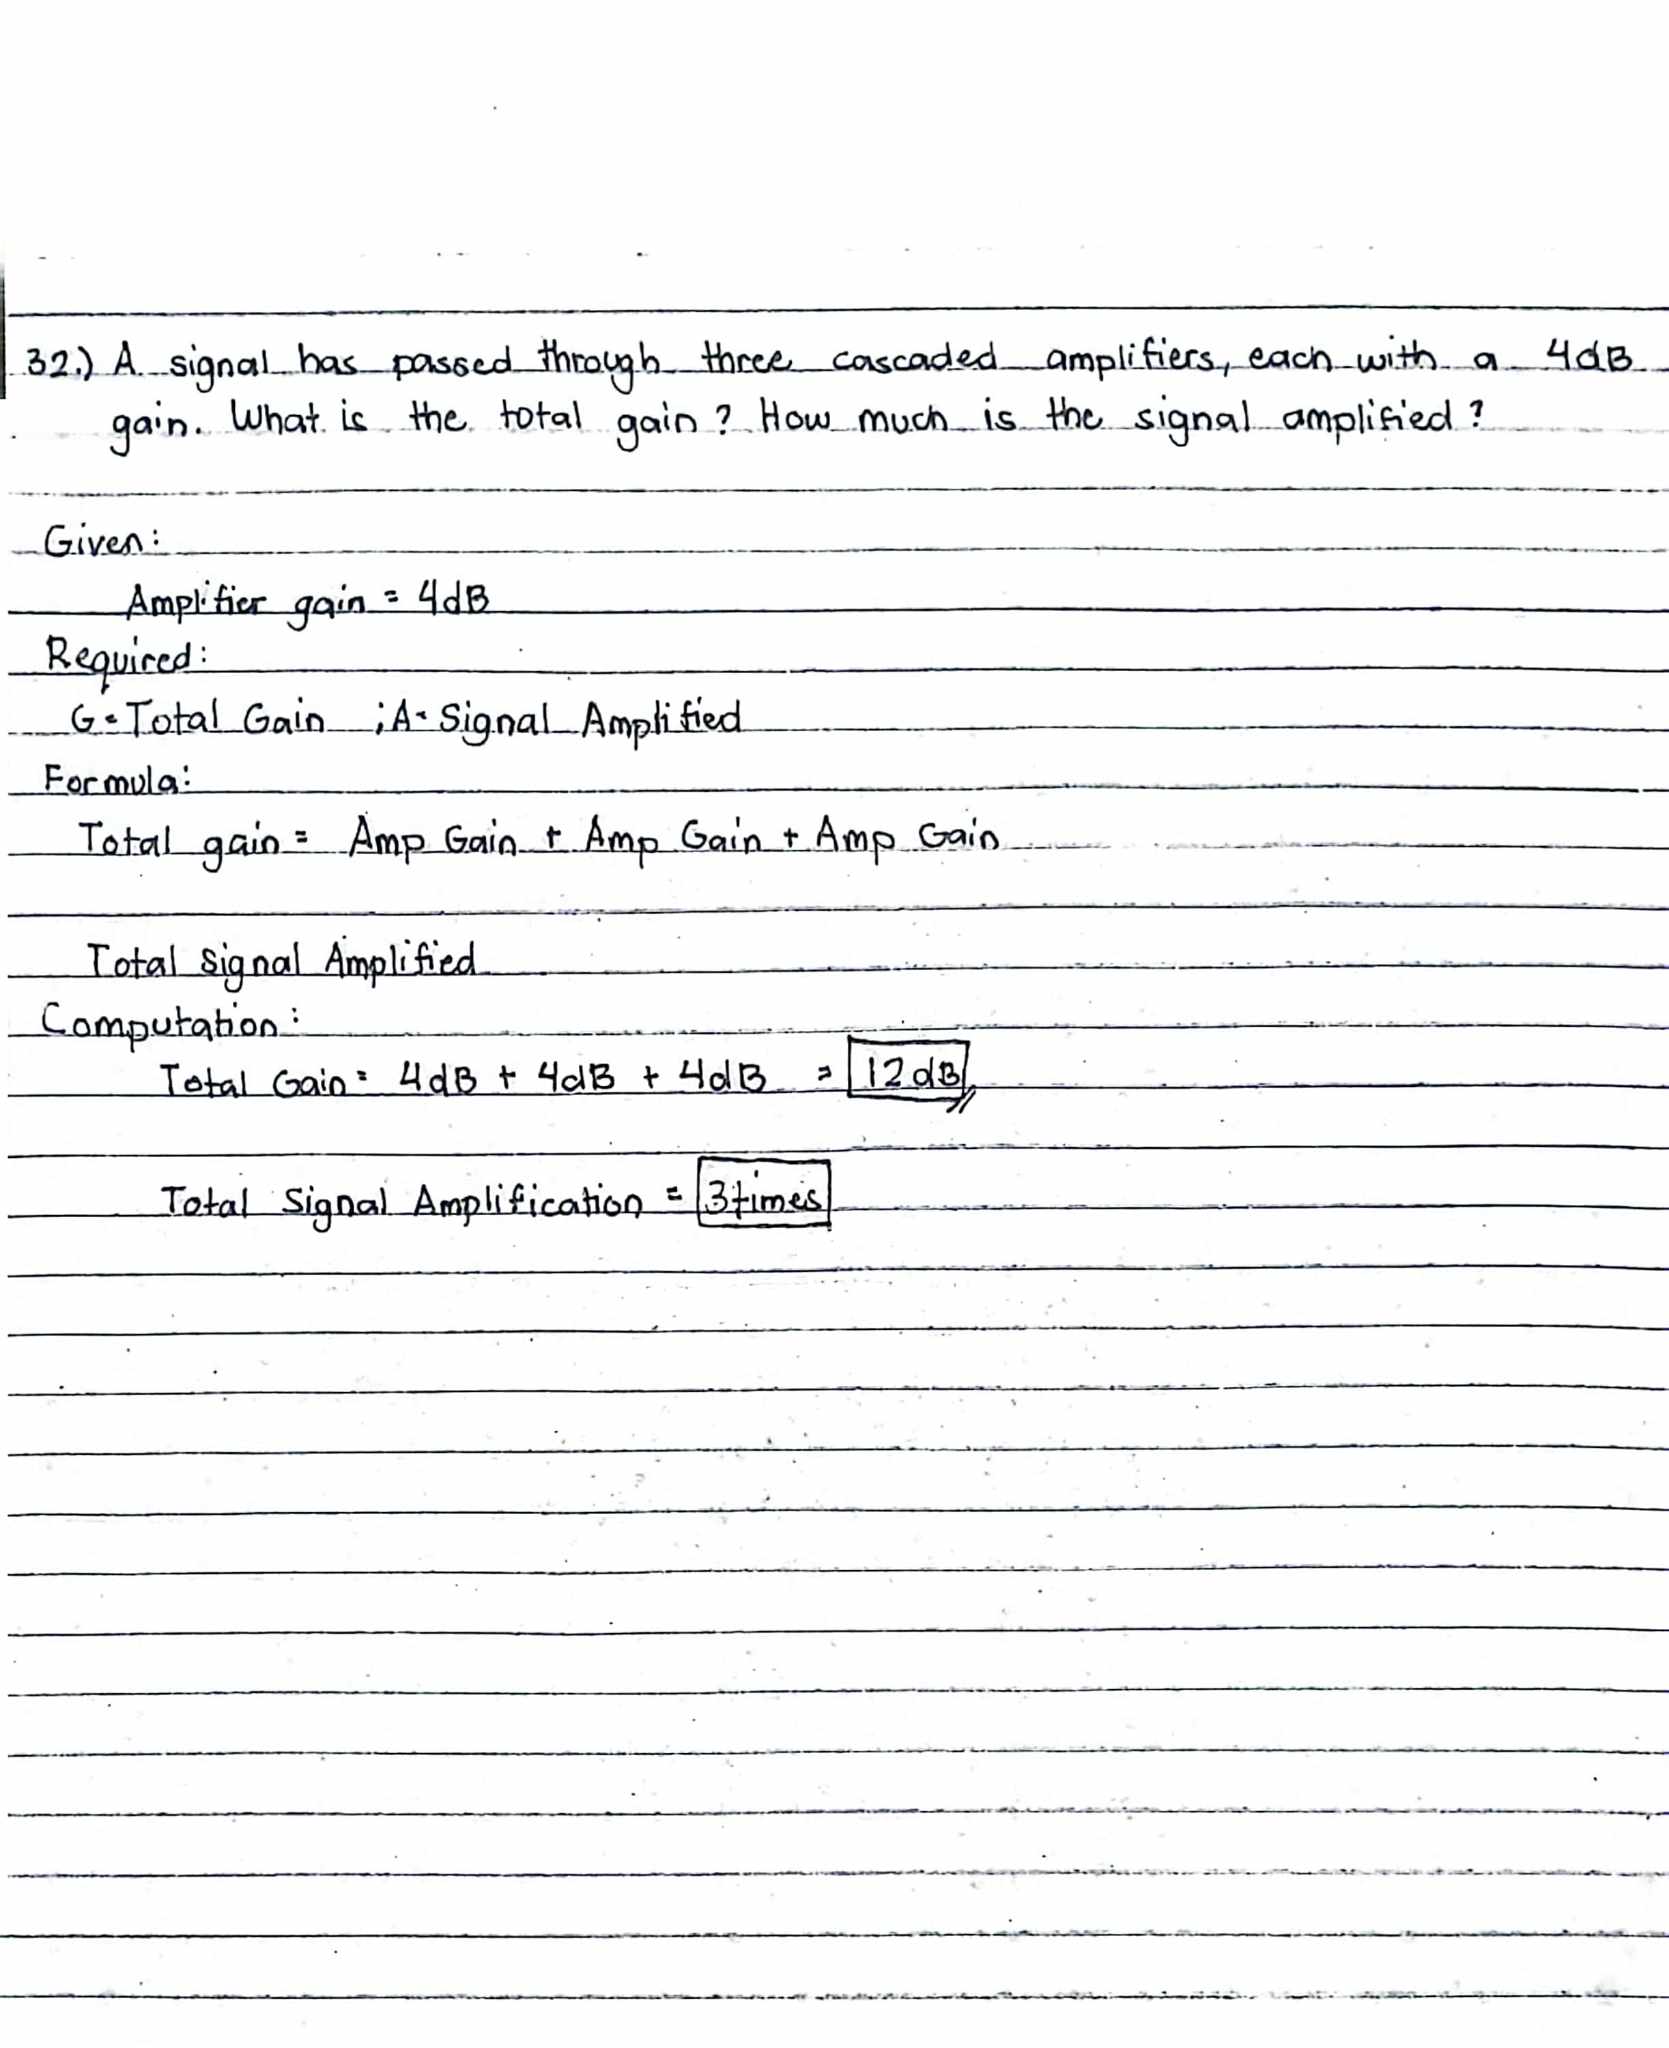 32.) A signal has passed through three cascaded amplifiers, each with a 4dB
gain. What is the total gain? How much is the signal amplified?
Given:
Amplifier gain = 4dB
Required:
G = Total Gain ; A = Signal Amplified
Formula:
Total gain = Amp Gain + Amp Gain + Amp Gain
Total Signal Amplified
Computation:
Total Gain = 4dB + 4dB + 4dB = 12dB
Total Signal Amplification = 3times